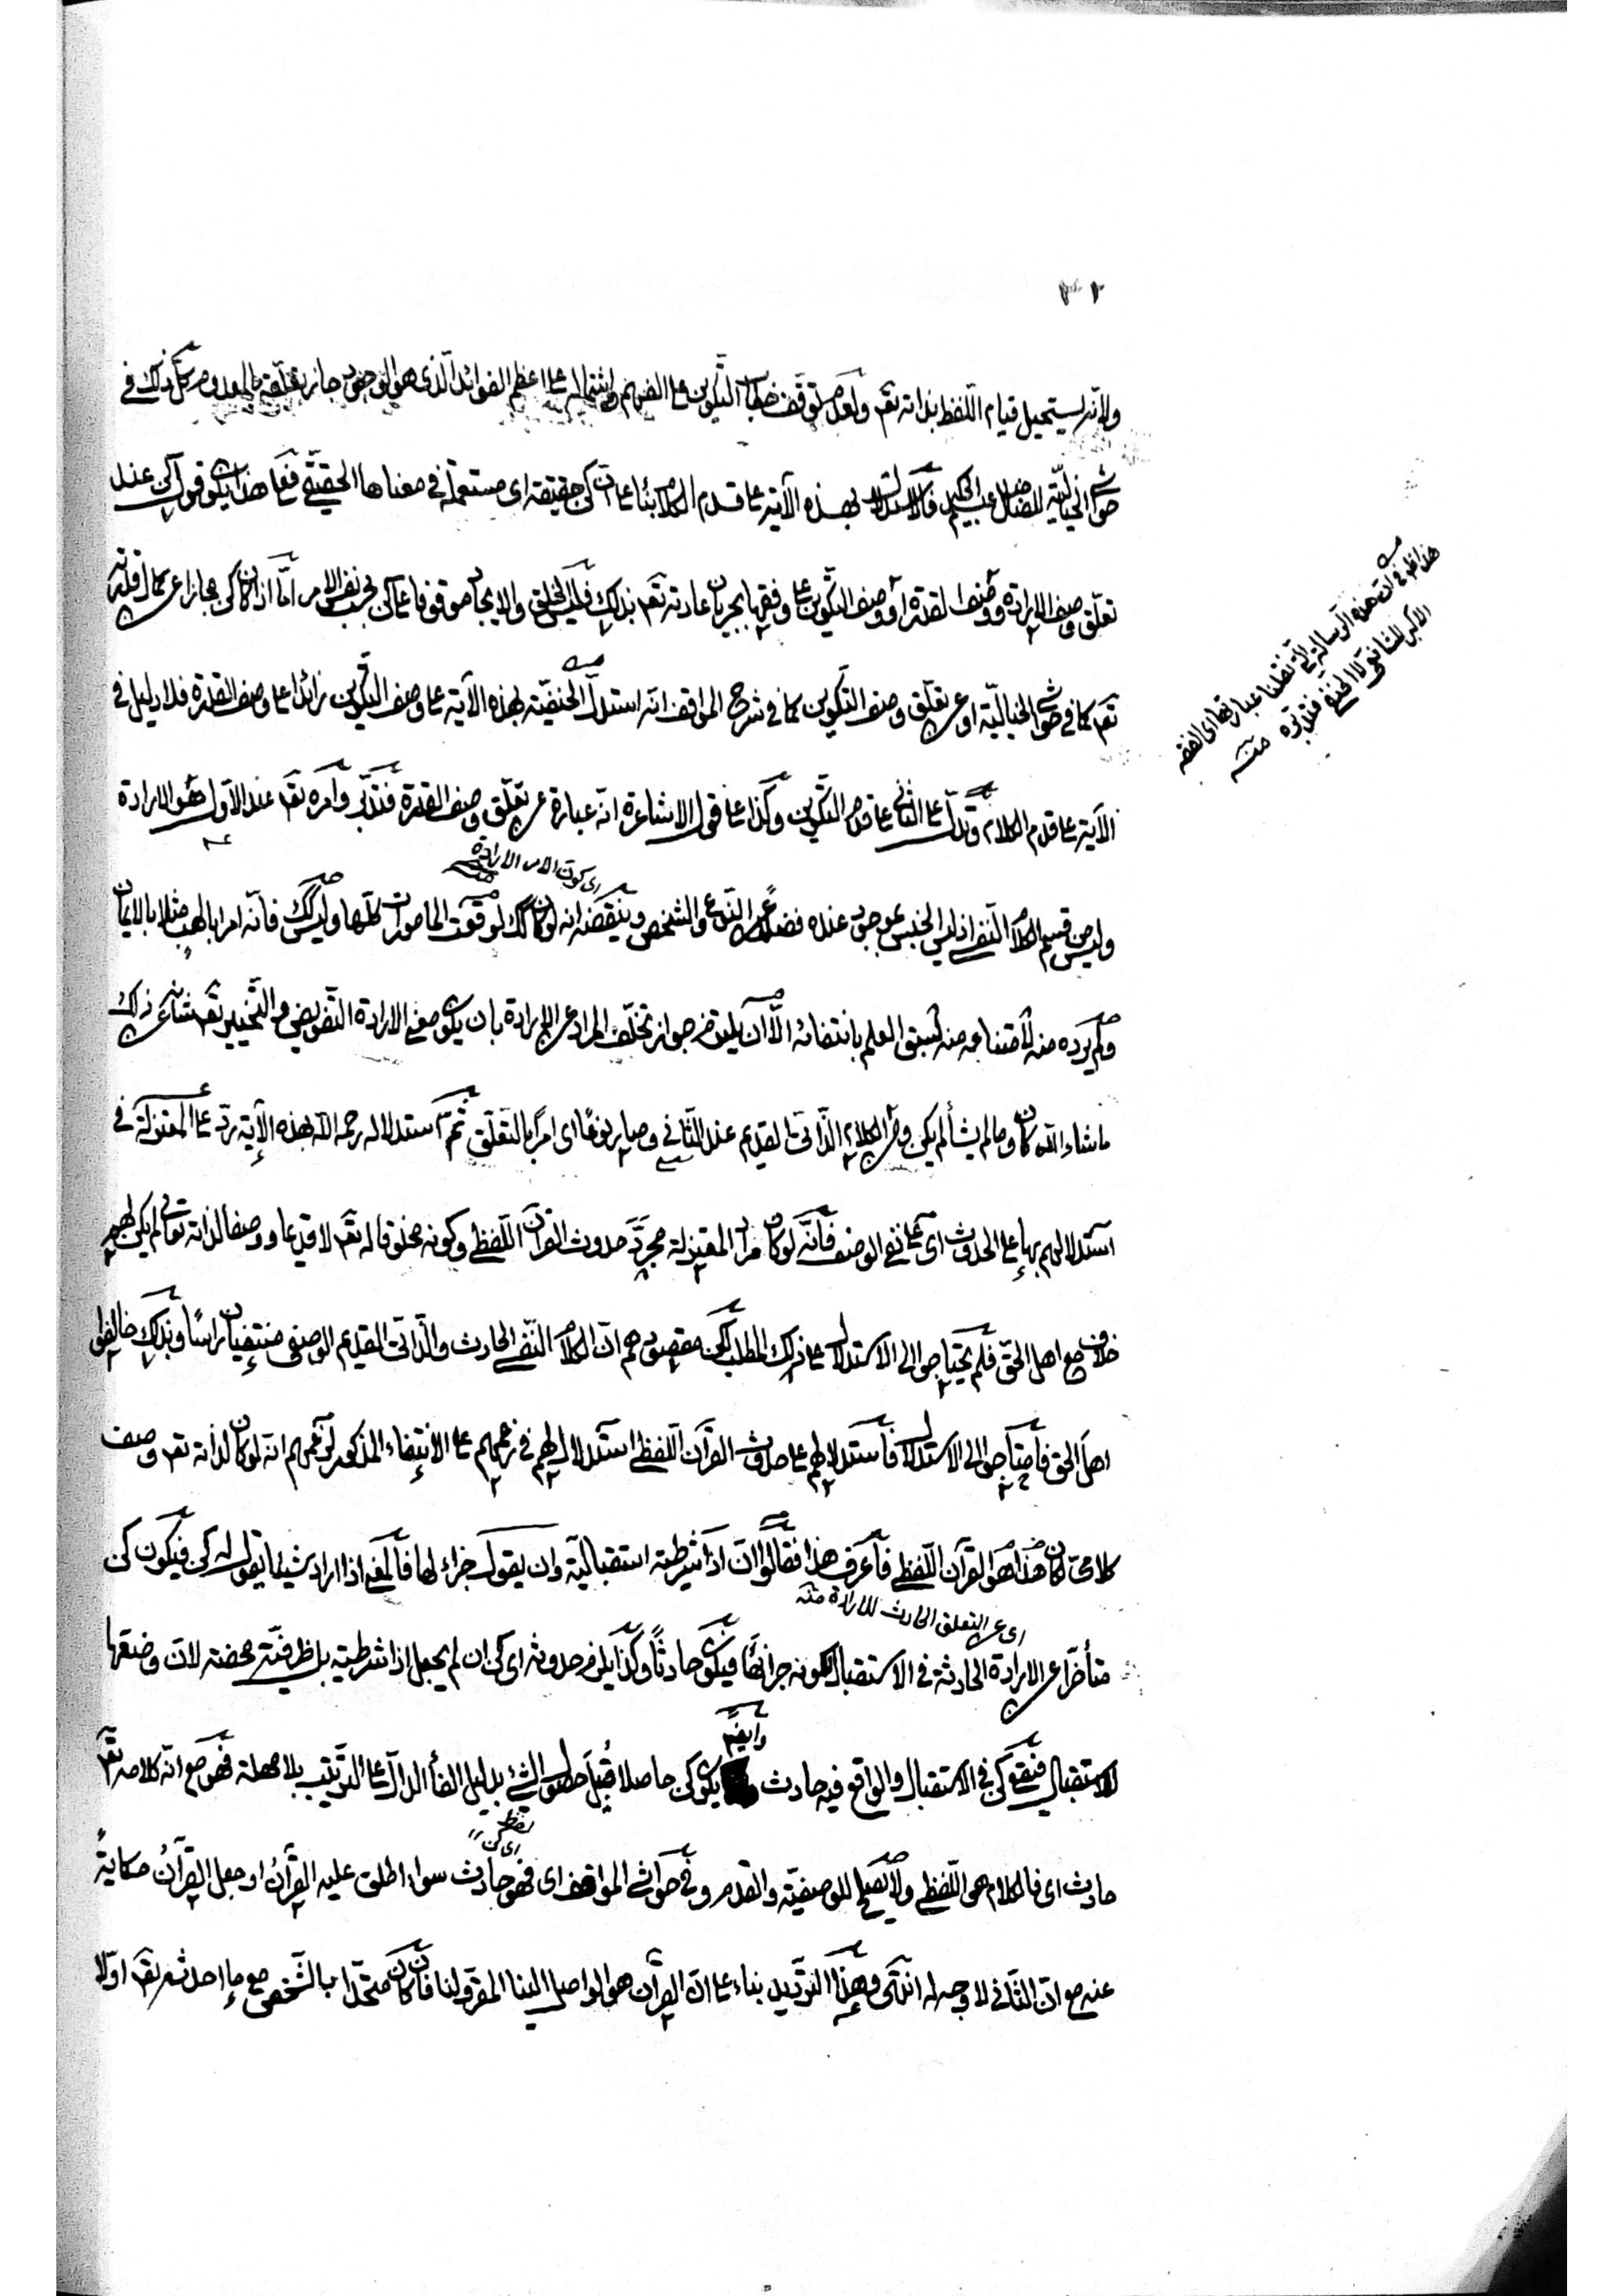 ولانه يستحيل قيام اللفظ بذاته تقم ولعدم توقف خطاب التكوين عا الفهم واشتماله عا اعظم الفوائد الذى هو الوجود جاز تعلقه بالمعدوم كل ذلك فى
حواشى الخيالية للفاضل عبد الحكيم فالاستدلال بهذه الآية عا قدم الكلام بناء عا ان كن حقيقة اى مستعملة فى معناها الحقيقى فعا هذا يكون قول كن عند
تعلق وصف الارادة ووصف القدرة او وصف التكوين عا وفقها بجريان عادته تقم بذلك فليس الخلق والايجاد موقوفا عا كن بحسب نفس الامر اما اذا كان كن مجازا عن كمال قدرته
تقم كما فى حواشى الخيالية او عن تعلق وصف التكوين كما فى شرح المواقف انه استدل الحنفية بهذه الآية عا وصف التكوين زائدا عا وصف القدرة فلا دليل فى
الآية عا قدم الكلام وتدل عا الثانى عا قدم التكوين وكذا عا قول الاشاعرة انه عبارة عن تعلق وصف القدرة فتدبر وامره تقم عند الاول هو الارادة
اى كون الامر الارادة
وليس من قسم الكلام النفسى اذ ليس الجنس بموجود عنده فضلا عن النوع والشخص وينقضه انه لو كان كذلك لوقعت المأمورات كلها وليس كذلك فانه امر ابا لهب مثلا بالايمان
ولم يرده منه لامتناعه منه لسبق العلم بانتفائه الا ان يلتزم جواز تخلف المراد عن الارادة بان يكون معنى الارادة التفويض والتخيير تقم شانه عن ذلك
ما شاء الله كان وما لم يشأ لم يكن ومن الكلام الذاتى القديم عند الثانى وصار نوعا اى امرا بالتعلق ثم استدلاله رحمه الله بهذه الآية رد عا المعتزلة فى
استدلالهم بها عا الحدوث اى عا نفى الوصف فانه لو كان مراد المعتزلة مجرد حدوث القرآن اللفظى وكونه مخلوقا له تقم لا قديما ووصفا لذاته تعالى لم يكن لهم
خلاف مع اهل الحق فلم يحتاجوا الى الاستدلال عا ذلك المطلب لكن مقصودهم ان الكلام النفسى الحادث والذاتى القديم الوصفى منتفيان راسا وبذلك خالفوا
اهل الحق فاحتاجوا الى الاستدلال فاستدلالهم عا حدوث القرآن اللفظى استدلال لهم فى زعمهم عا الانتفاء المذكور لزعمهم انه لو كان لذاته تقم وصف
كلامى لكان هذا هو القرآن اللفظى فاعرف هذا فقالوا ان اذا شرطية استقبالية وان يقول جزاء لها فالمعنى اذا اراد شيئا يقول له كن فيكون كن
اى عن التعلق الحادث للارادة منه
متأخرا عن الارادة الحادثة فى الاستقبال لكونه جزائها فيكون حادثا وكذا يلزم حدوثه اى كن ان لم يجعل اذا شرطية بل ظرفية محضة لان وضعها
للاستقبال فيقع كن فى الاستقبال والواقع فيه حادث وايضا يكون كن حاصلا قبيل حصول الشئ بدليل الفأ الدال عا الترتيب بلا مهلة فهو مع انه كلامه تقم
لفظ
اى كن
حادث اى فالكلام هى اللفظى ولا يصلح للوصفية والقدم وفى حواشى المواقف اى فهو حادث سواء اطلق عليه القرآن او جعل القرآن حكاية
عنه مع ان الثانى لا وجه له انتهى وهذا الترديد بناء عا ان القرآن هو الواصل الينا المقرو لنا فان كان متحدا بالشخص مع ما احدثه تقم اولا
هذا ظاهر فى ان هذه الرسالة التى نقلنا عبارتها اى الفقه
الاكبر للشافعى لا للحنفى فتدبره منه